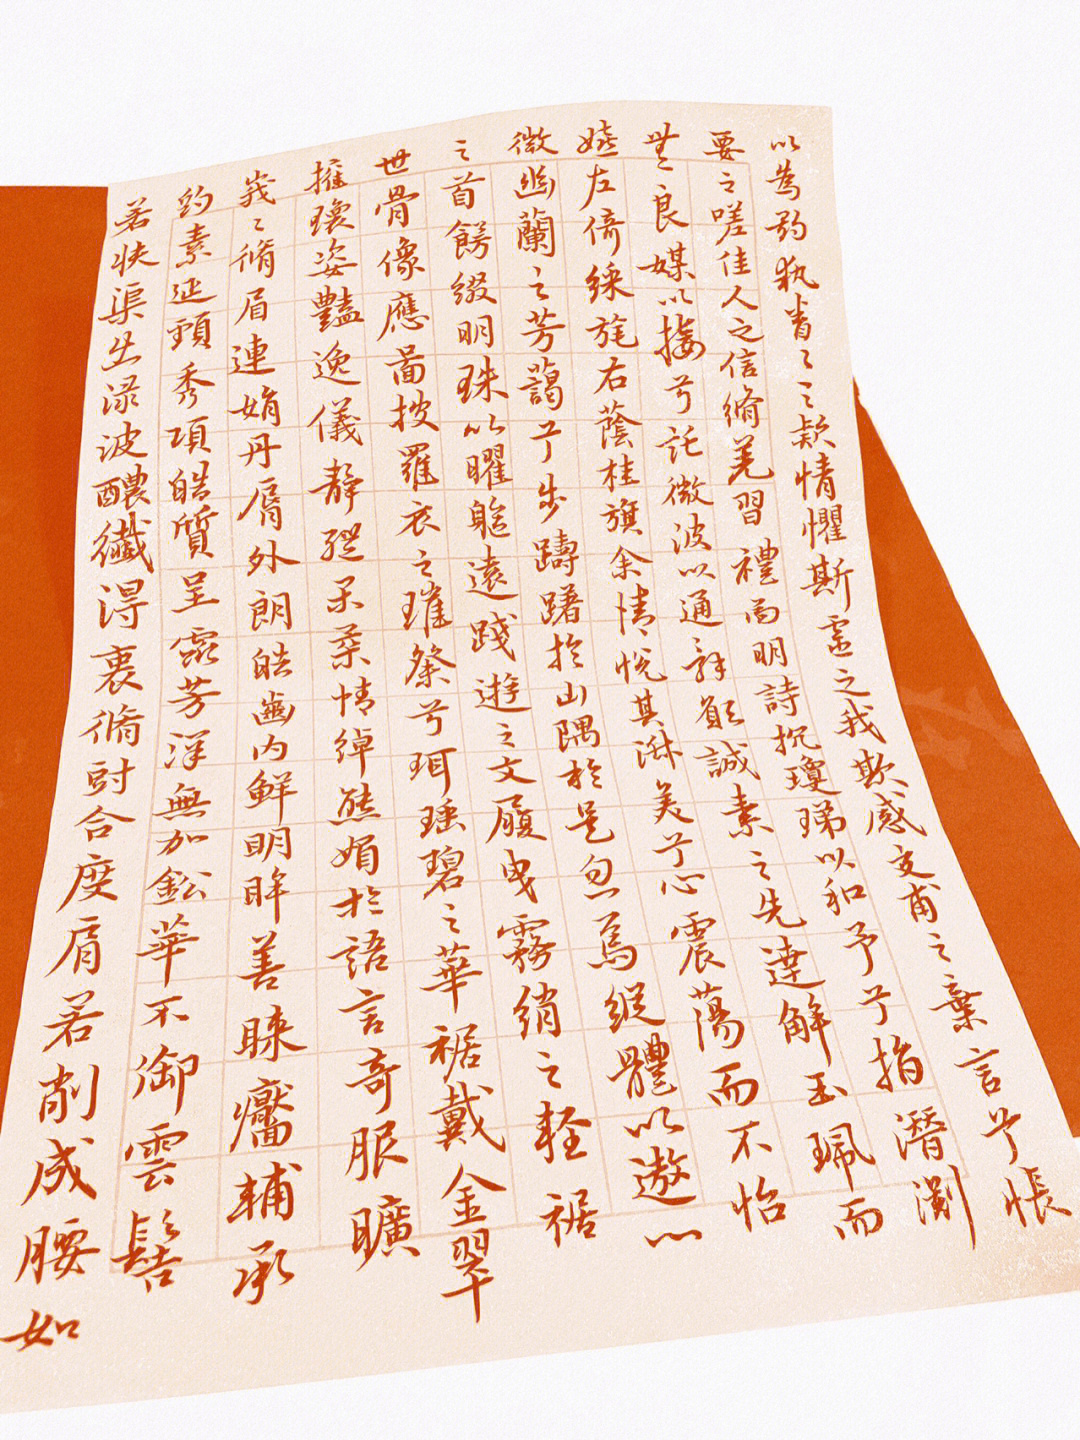 若扶渠出淥波醲纖得衷脩䂓合度肩若削成腰如
約素延頸秀項皓質呈露芳澤無加鈆華不御雲髻
峩〻脩眉連娟丹脣外朗皓齒內鮮明眸善睞靨輔承
權瓌姿豔逸儀靜體閑柔情綽態媚於語言奇服曠
世骨像應圖披羅衣之璀粲兮珥瑤碧之華裾戴金翠
之首餝綴明珠以曜軀遠踐遊之文履曳霧綃之輕裾
微幽蘭之芳藹兮步躊躇於山隅於是忽焉縱體以遨以
嬉左倚綵旄右蔭桂旗余情悅其淑美兮心震蕩而不怡
無良媒以接兮託微波以通辭願誠素之先達解玉珮而
要之嗟佳人之信脩羌習禮而明詩抗瓊珶以和予兮指潛淵
以為期執眷〻之款情懼斯靈之我欺感交甫之棄言兮悵